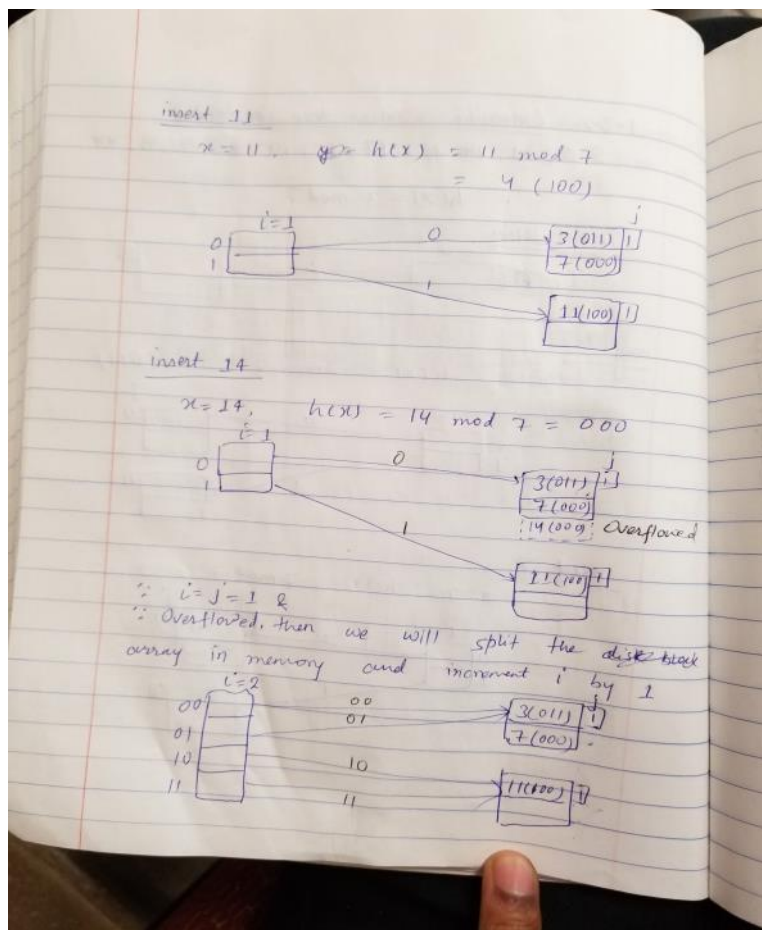 insert 11
x = 11. h(x) = 11 mod 7
= 4 (100)
i=1
j
0
0
3(011) 1
1
7(000)
1
11(100) 1
insert 14
x=14, h(x) = 14 mod 7 = 000
i=1
j
0
0
3(011) 1
1
7(000)
14(000) Overflowed
1
11(100) 1
∵ i=j=1 &
∵ Overflowed, then we will split the
array in memory and increment i by 1
i=2
j
00
00
3(011) 1
01
01
7(000)
10
10
11(100) 1
11
11